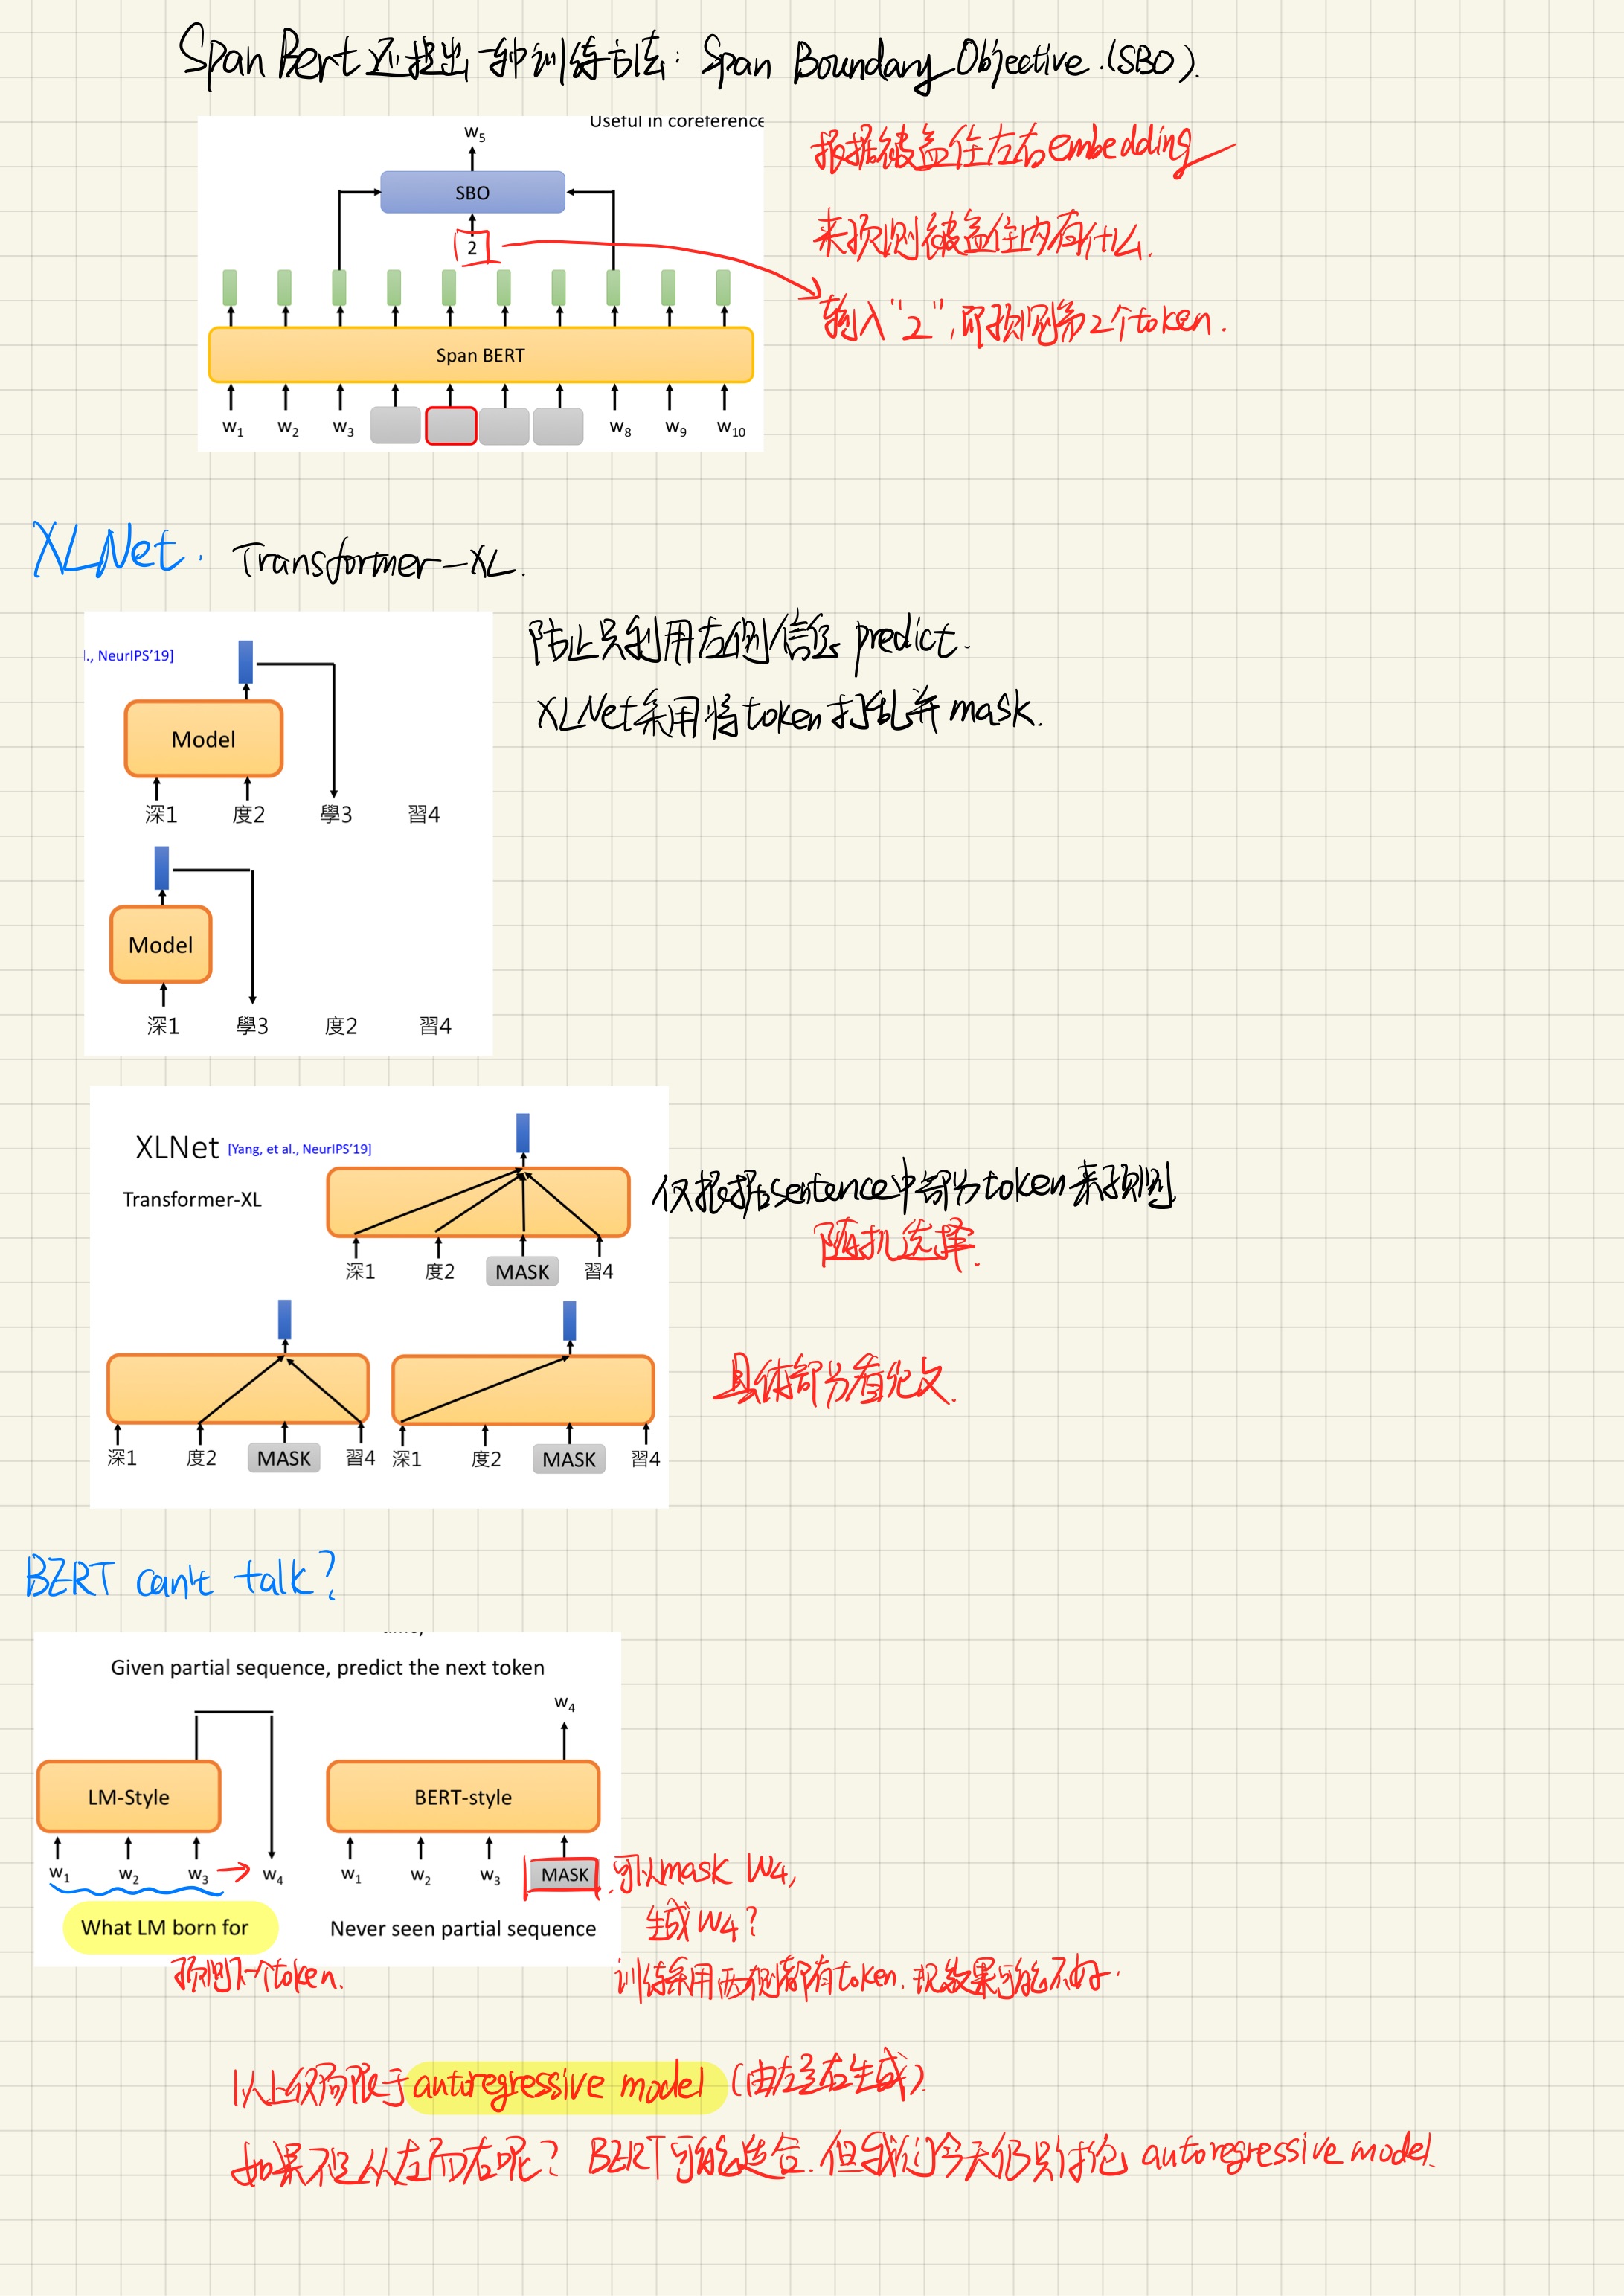 Span Bert还提出一种训练方法: Span Boundary Objective.(SBO).
Useful in coreference
w5
SBO
2
Span BERT
w1 w2 w3 w8 w9 w10
根据被盖住左右embedding
来预测被盖住内有什么.
输入“2”,即预测第2个token.
XLNet. Transformer-XL.
., NeurIPS’19]
Model
深1 度2 學3 習4
Model
深1 學3 度2 習4
防止只利用左侧信息predict.
XLNet采用将token打乱并mask.
XLNet [Yang, et al., NeurIPS’19]
Transformer-XL
深1 度2 MASK 習4
深1 度2 MASK 習4
深1 度2 MASK 習4
仅根据sentence中部分token来预测
随机选择.
具体部分看论文.
BERT can't talk?
Given partial sequence, predict the next token
w4
LM-Style
BERT-style
w1 w2 w3 w4
w1 w2 w3 MASK
What LM born for
Never seen partial sequence
预测下个token.
可以mask W4,
生成W4?
训练采用两侧都有token.现效果可能不好.
以上仅局限于autoregressive model (由左至右生成)
如果不是从左而右呢? BERT可能适合.但我们今天仍只讨论 autoregressive model.